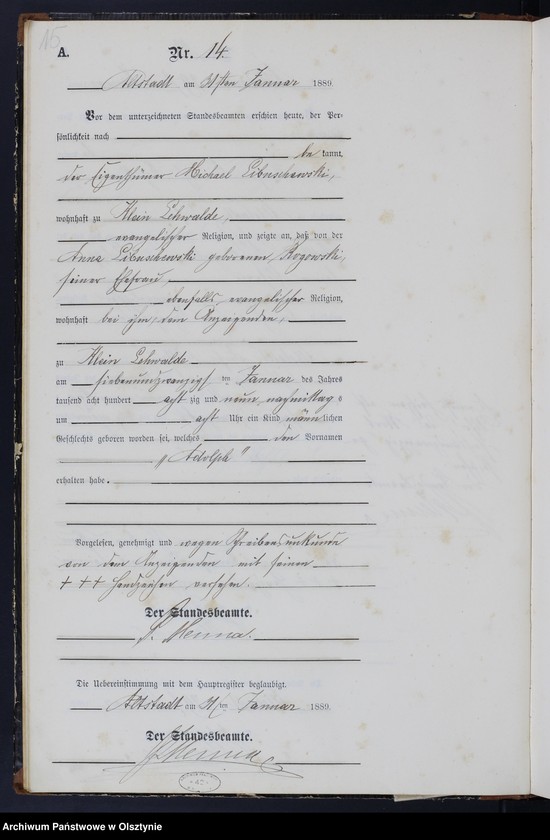 15
A. Nr. 14.
Altstadt am 31ten Januar 1889.
Vor dem unterzeichneten Standesbeamten erschien heute, der Per-
sönlichkeit nach
be kannt,
der Eigenthümer Michael Libuschewski,
wohnhaft zu Klein Lehwalde,
evangelischer Religion, und zeigte an, daß von der
Anna Libuschewski geborenen Rogowski,
seiner Ehefrau
ebenfalls evangelischer Religion,
wohnhaft bei ihm, dem Anzeigenden,
zu Klein Lehwalde
am siebenundzwanzigsten Januar des Jahres
tausend acht hundert acht zig und neun nachmittags
um acht Uhr ein Kind männlichen
Geschlechts geboren worden sei, welches den Vornamen
„Adolph"
erhalten habe.
Vorgelesen, genehmigt und wegen Schreibensunkunde
von dem Anzeigenden mit seinen
+++ Handzeichen versehen.
Der Standesbeamte.
Die Uebereinstimmung mit dem Hauptregister beglaubigt.
Altstadt am 31ten Januar 1889.
Der Standesbeamte.
Archiwum Państwowe w Olsztynie